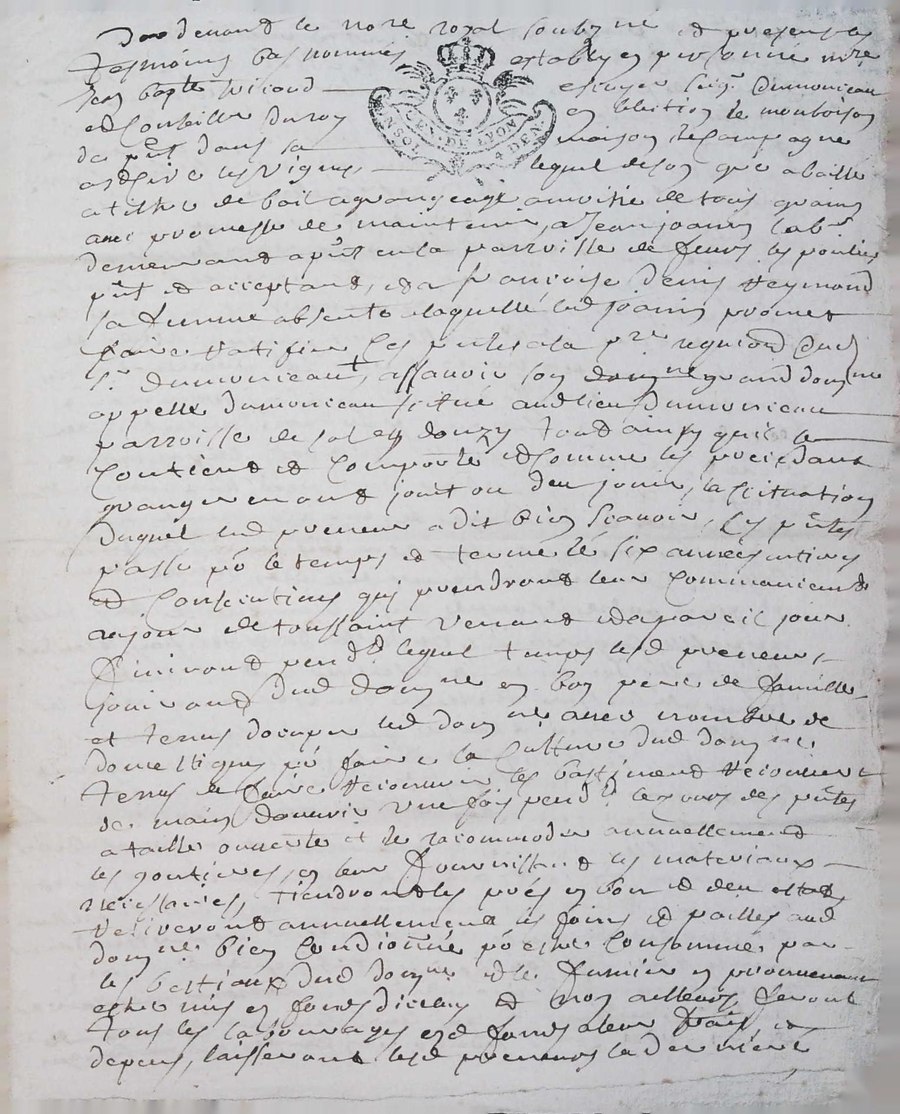 devant le nore royal soubzne et presents
tesmoins bas nommes estably en personne mre
Jean bapte escuyer seigr dumonceau
et conseiller du roy en lelection de montbrison
de put dans sa maison de campagne
lequel de son gré a baillé
a tiltre de bail a grangeage a moitié de tous grains
avec promesse de maintenir, a Jean Joanin labr
demeurant a put en la parroisse de feurs les
put et acceptant, et a françoise denis Reymond
sa femme absente a laquelle led Joanin promet
faire ratifier les putes a la pre requion dud
sr dumonceau, assavoir son grand domne
appellé dumonceau scitué aud lieu dumonceau
parroisse de salt en donzy tout ainsy quil se
contient et comporte et comme les precedants
grangers en ont jouit ou deu jouir, la scituation
duquel led preneur a dit bien scavoir, les putes
passé po le temps et terme de six années entieres
et consecutives qui prendront leur commencement
au jour de toussaint venant et a pareil jour
finiront pendt lequel temps led preneur
jouiront dud domne en bon pere de famille
et tenus doccuper led domne avec nombre de
domestiques po faire la culture dud domne
tenus de faire recouvrir les bastiments
de main douvrier une fois pendt le cours des putes
a taille ouverte et le racommoder annuellement
les goutieres, en leur fournissant les materiaux
necessaires, tiendront les prés en bon et deu estat
retireront annuellement les foins et pailles aud
domne bien conditionné po estre consommé par
les bestiaux dud domne et le fumier en provenant
estre mis es fonds diceluy et non ailleurs, feront
tous les labourages esd fonds a leur frais, et
depens, laisseront lesd preneurs la derniere
GEN DE LYON
4 DEN